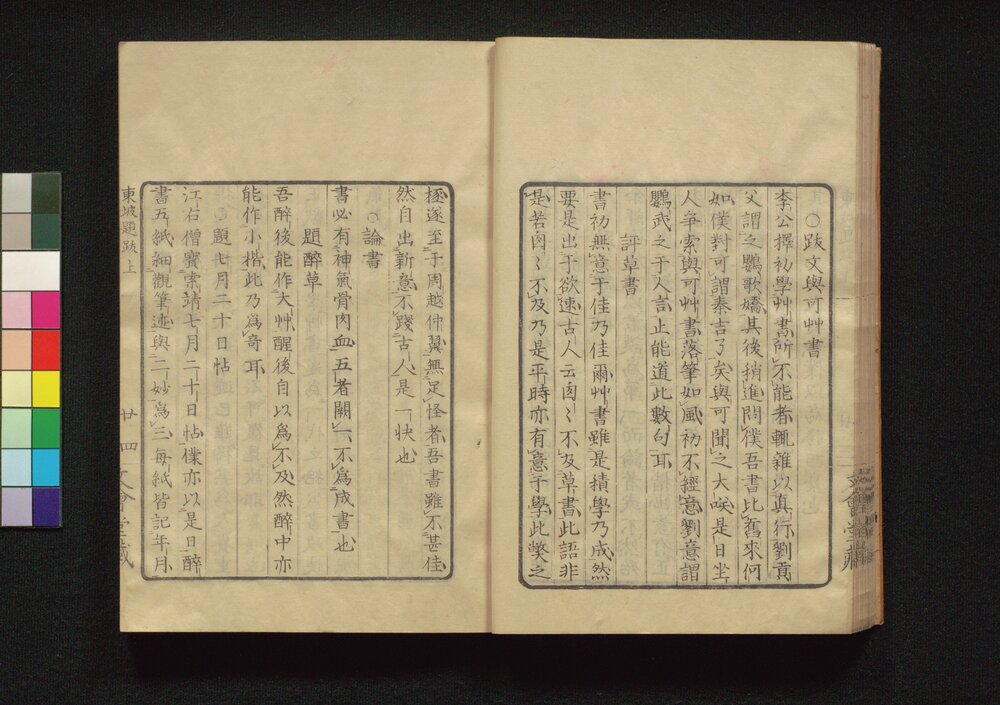 ○跋文與可艸書
李公擇初學艸書所不能者輒雜以真行劉貢
父謂之鸚歌嬌其後稍進問僕吾書比舊來何
如僕對可謂秦吉了矣與可聞之大咲是日坐
人爭索與可艸書落筆如風初不經意劉意謂
鸚武之于人言止能道此數句耳
評草書
書初無意于佳乃佳爾艸書雖是積學乃成然
要是出于欲速古人云匆〻不及草書此語非
是若匆〻不及乃是平時亦有意于學此獘之
極遂至于周越仲翼無足怪者吾書雖不甚佳
然自出新意不踐古人是一快也
○論書
書必有神氣骨肉血五者闕一不爲成書也
題醉草
吾醉後能作大艸醒後自以爲不及然醉中亦
能作小楷此乃爲奇耳
○題七月二十日帖
江右僧寶索靖七月二十日帖僕亦以是日醉
書五紙細觀筆迹與二妙爲三每紙皆記年月
東坡題跋上
廿四
文會堂藏